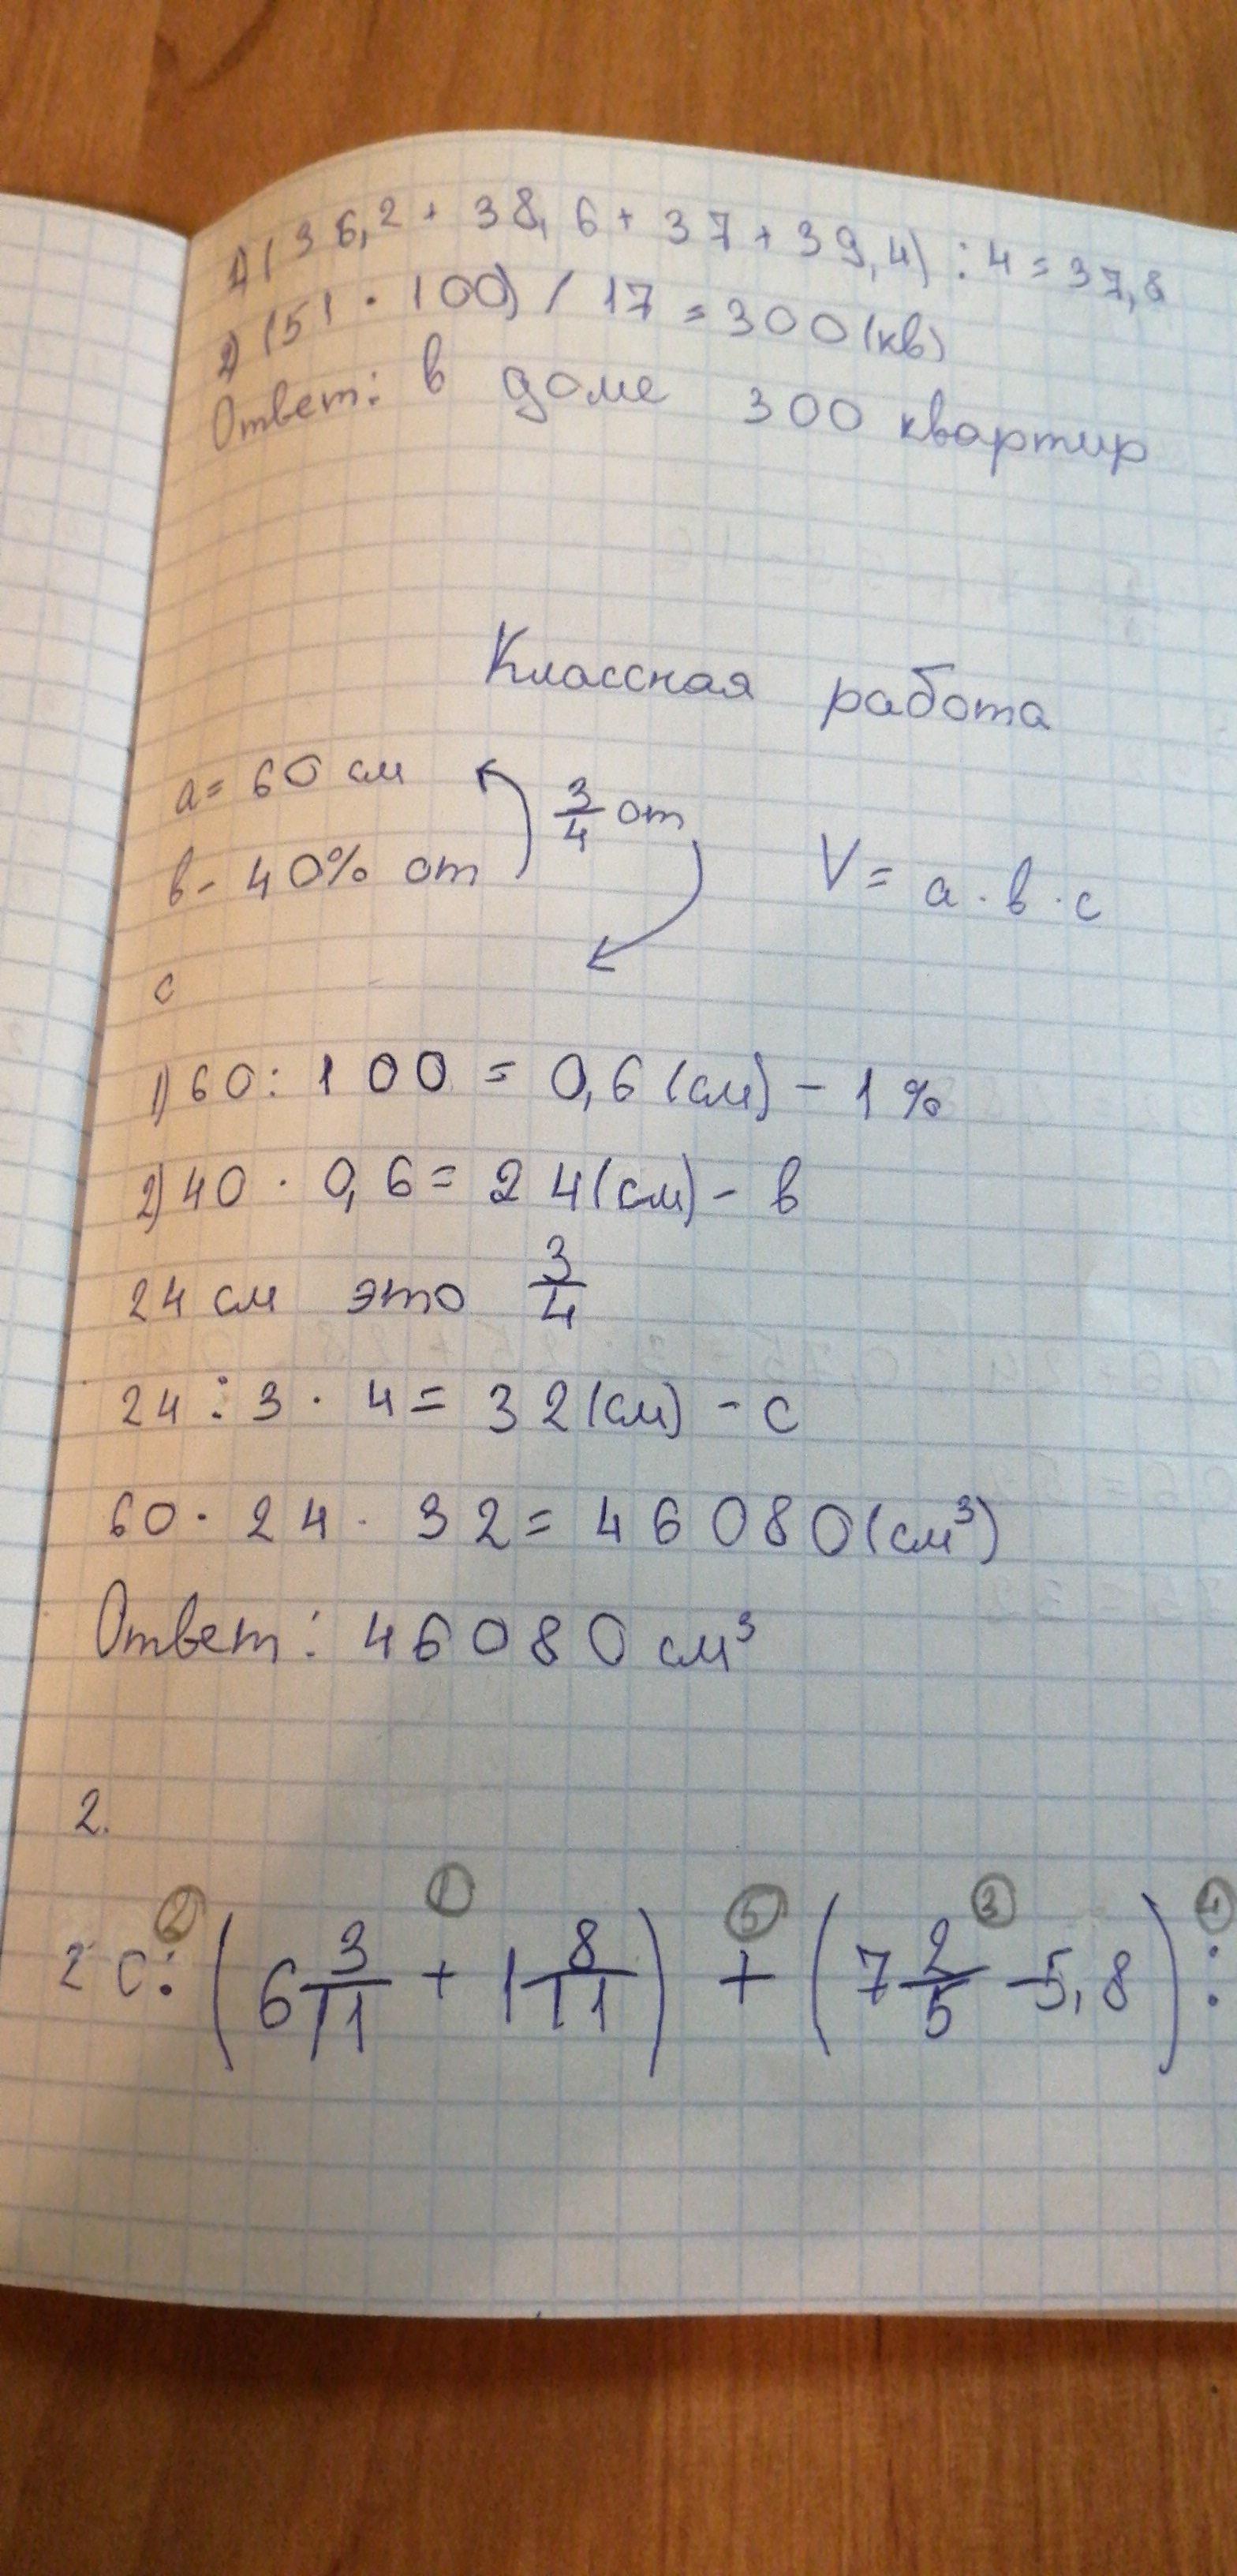 1) (36,2 + 38,6 + 37 + 39,4) : 4 = 37,8
2) (51 · 100) / 17 = 300 (кв)
Ответ: в доме 300 квартир
Классная работа
a = 60 см
в - 40% от
3/4 от
V = a · в · c
c
1) 60 : 100 = 0,6 (см) - 1 %
2) 40 · 0,6 = 24 (см) - в
24 см это 3/4
24 : 3 · 4 = 32 (см) - c
60 · 24 · 32 = 46080 (см³)
Ответ: 46080 см³
2.
2 1 5 3 4
20 : (6 3/11 + 1 8/11) + (7 2/5 - 5,8) :